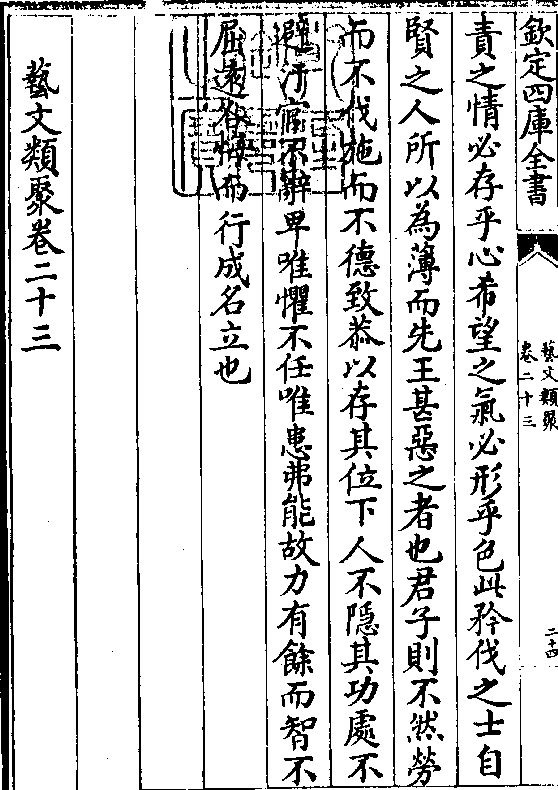 欽定四庫全書
藝文類聚
卷二十三
二十四
責之情必存乎心希望之氣必形乎色此矜伐之士自
賢之人所以為薄而先王甚惡之者也君子則不然勞
而不伐施而不德致恭以存其位下人不隱其功處不
避汙官不辭卑唯懼不任唯患弗能故力有餘而智不
屈遠咎悔而行成名立也
藝文類聚卷二十三